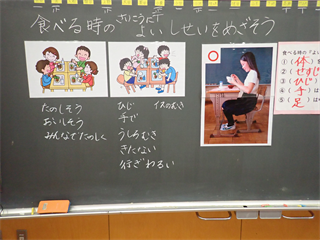 食べる時の さいこうに よいしせいをめざそう
たのしそう
おいしそう
みんなでたのしく
ひじ イスのむき
手で
うしろむき
きたない
行ぎわるい
食べる時の
①(体)
②(せすじ)
③(ひじ)
④(手)
⑤(足)